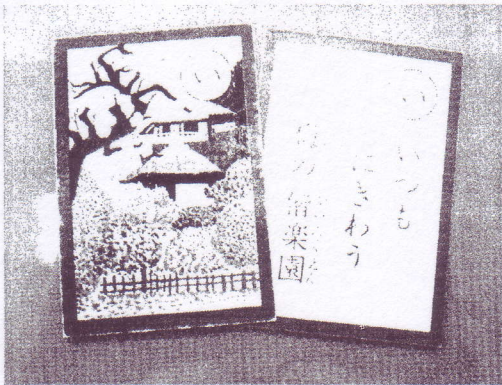 い
い
いつも
にぎわう
梅の偕楽園